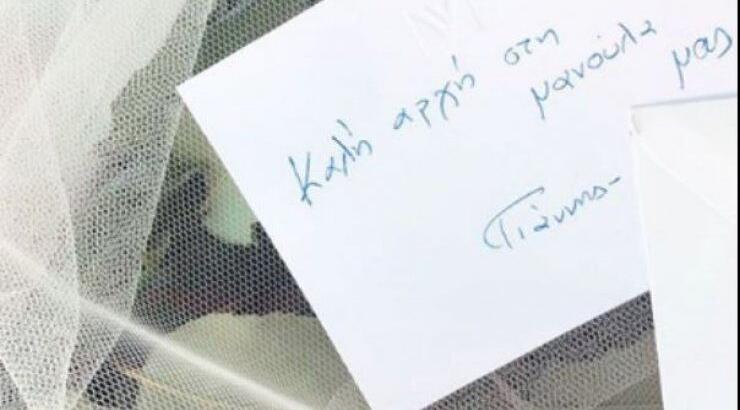 Καλή αρχή στη
μανούλα μας
Γιάννης-